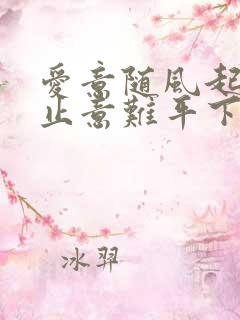 愛意随風起
止意難平下
冰羿